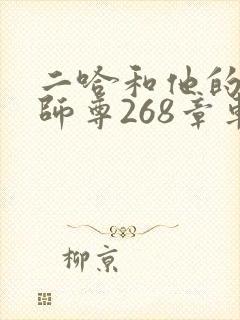 二哈和他的
師尊268章
柳京